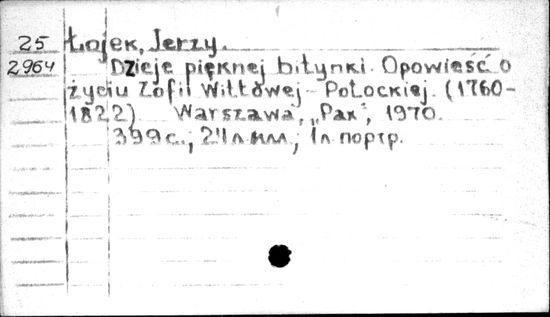 25 Łojek, Jerzy.
2964 Dzieje pięknej bitynki. Opowieść o
życiu Zofii Wittowej-Potockiej. (1760-
1822) Warszawa, „Pax", 1970.
399 с.; 24 л. илл.; 1 л. портр.